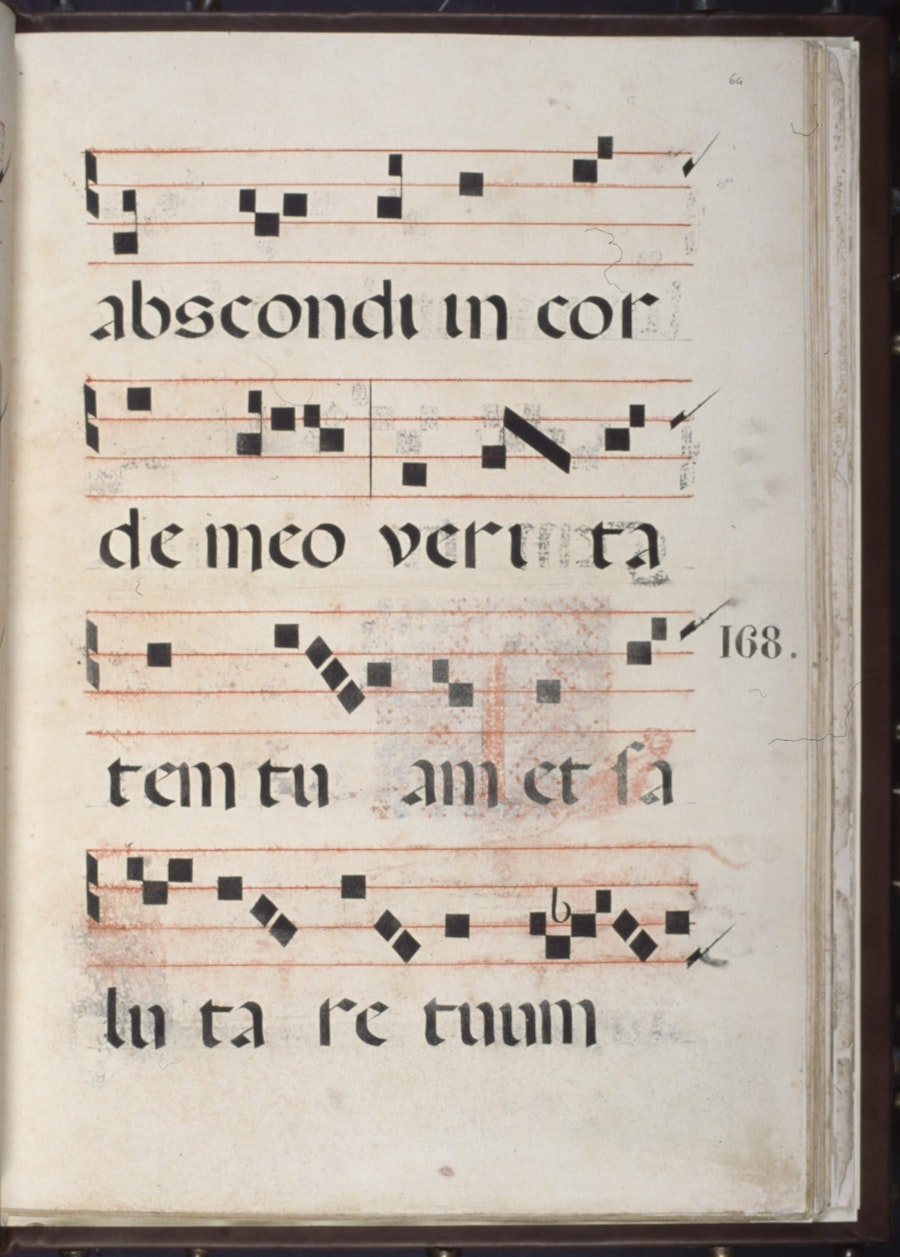 64
abscondi in cor
de meo veri ta
168.
tem tu am et ſa
b
lu ta re tuum